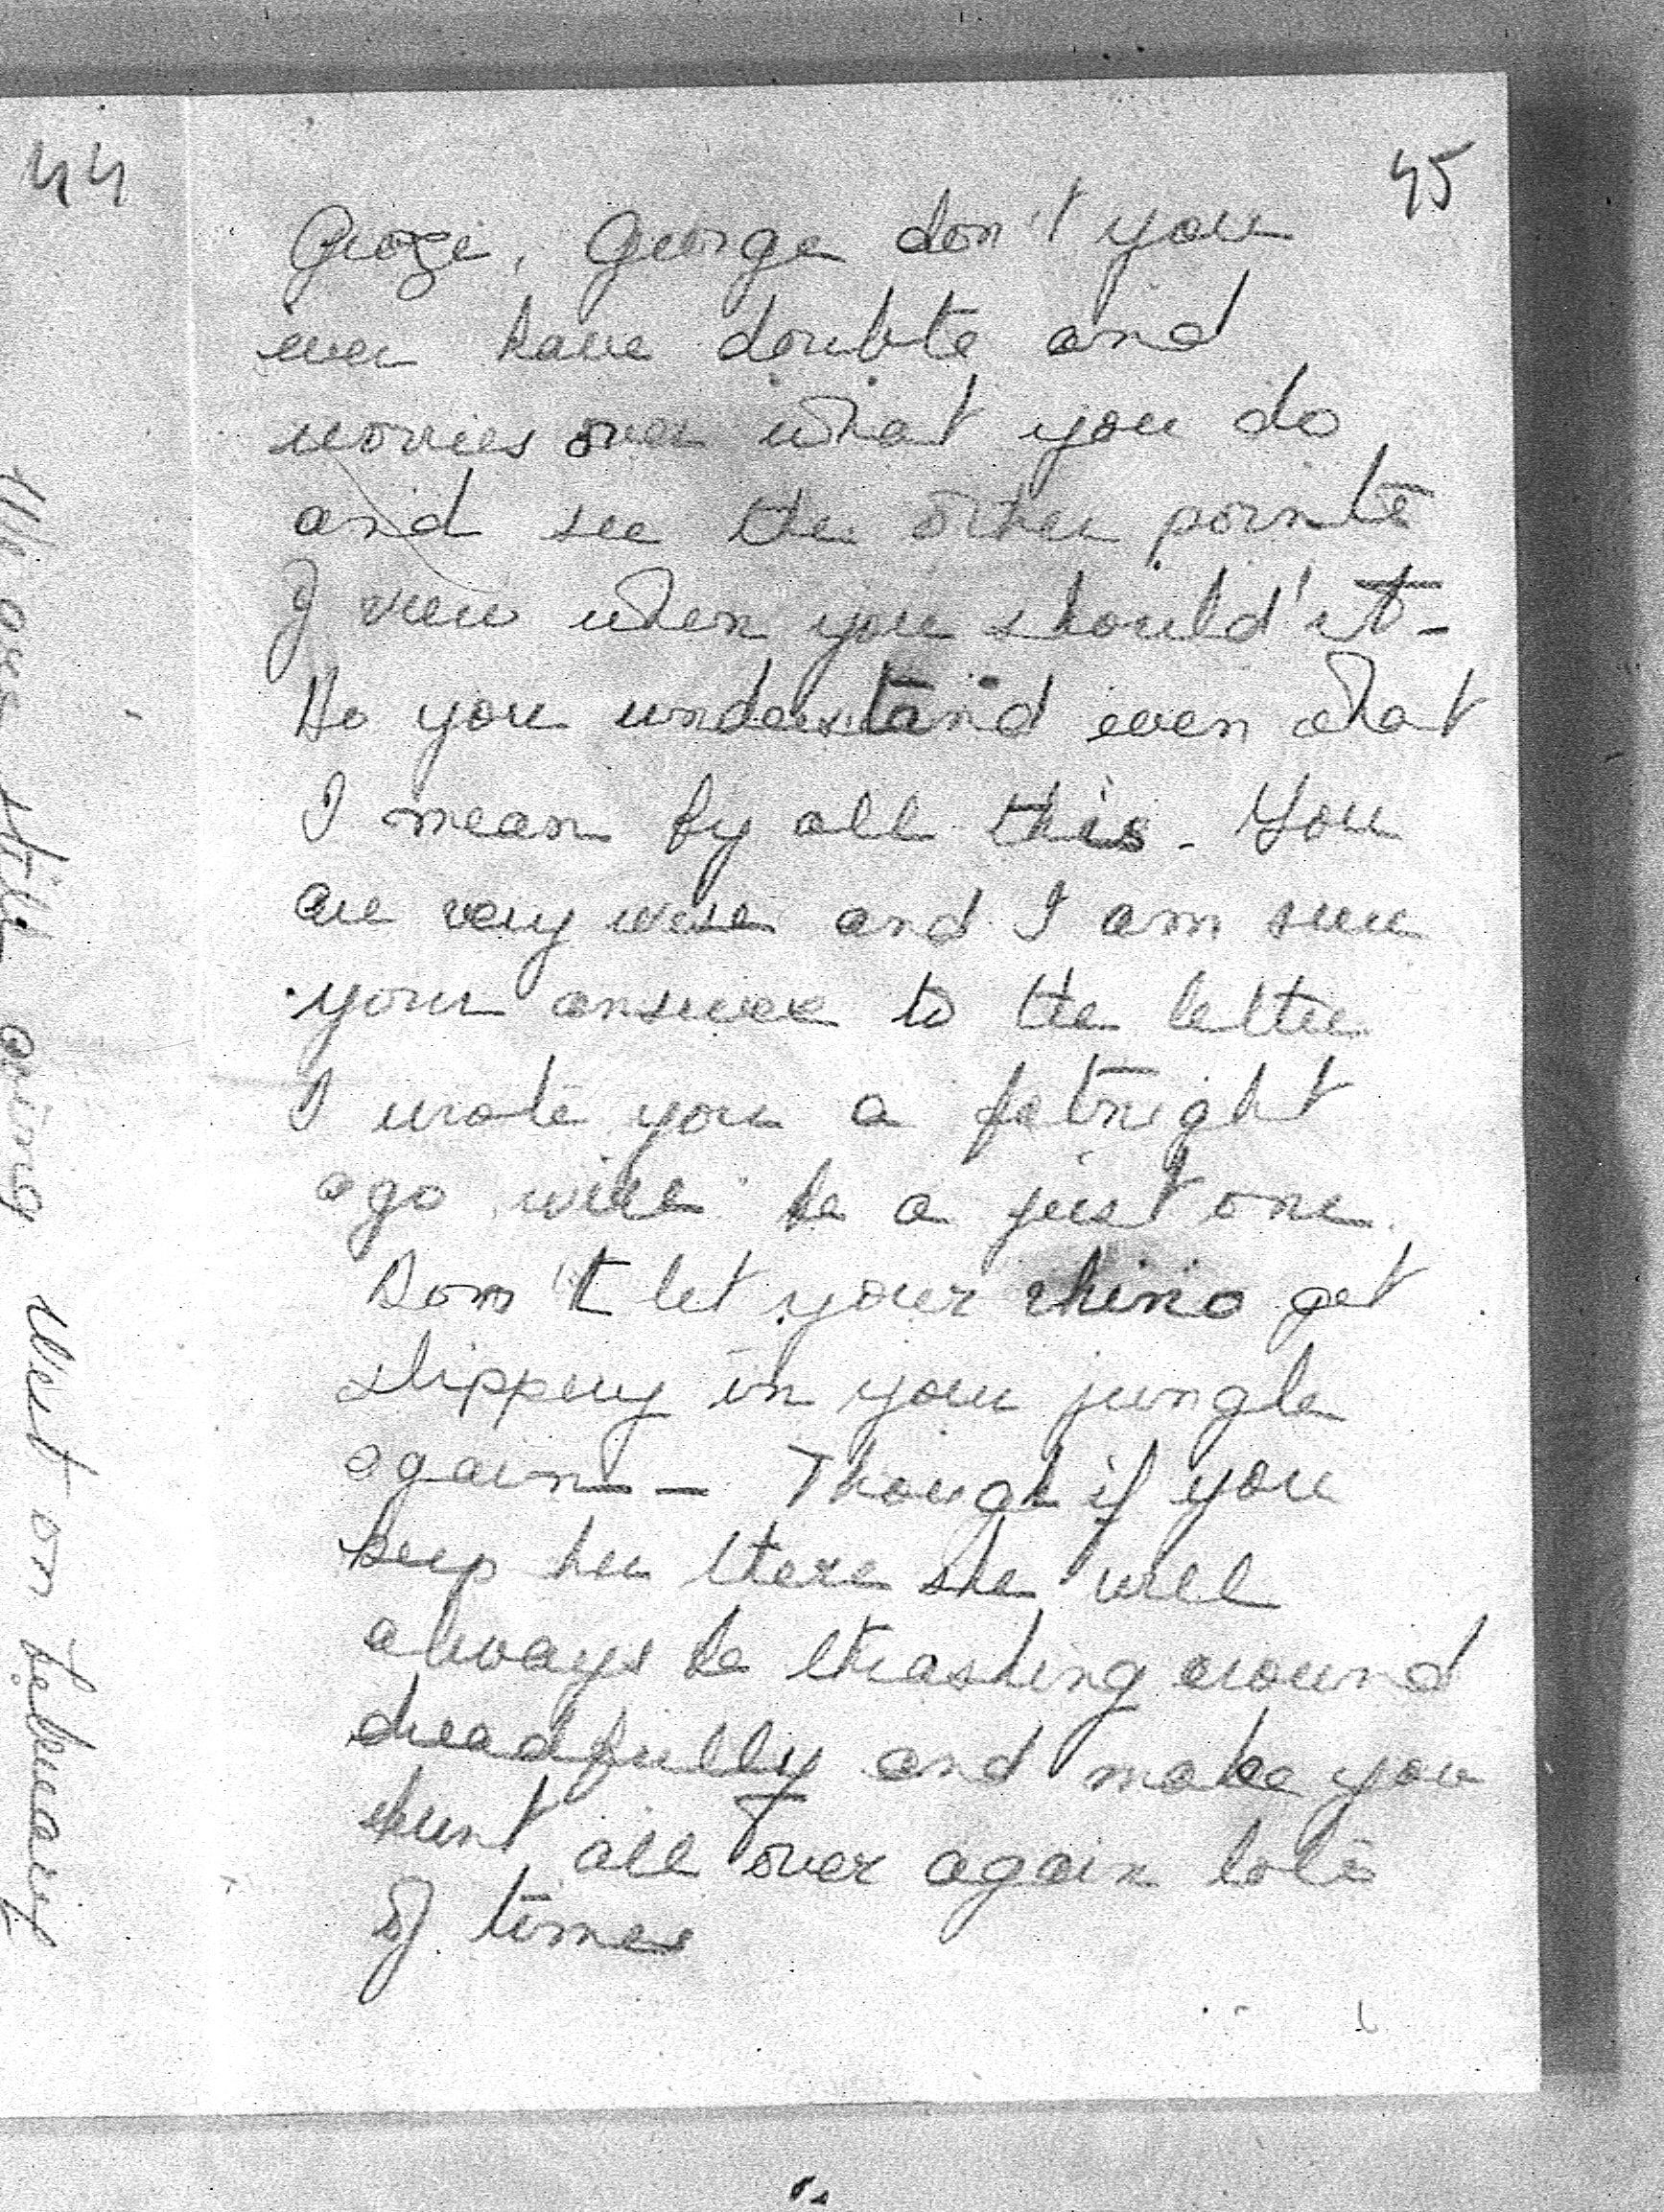 44
45
George, George don't you
ever have doubts and
worries over what you do
and see the other points
of view when you should'nt -
Do you understand even what
I mean by all this - You
are very wise and I am sure
your answer to the letter
I wrote you a fotnight
ago will be a just one.
Don't let your rhino get
slippery in your jungle
again -- Though if you
keep her there she will
always be thrashing around
dreadfully and make you
hunt all over again lots
of times
We are still going West on February